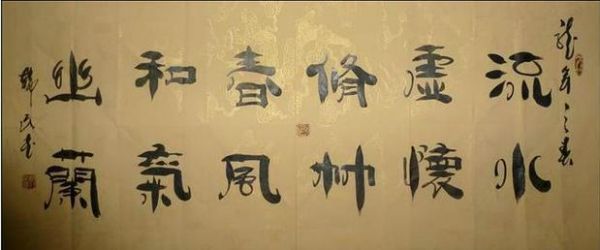 龍年之春
流水
虛懷
脩竹
春風
和氣
幽蘭